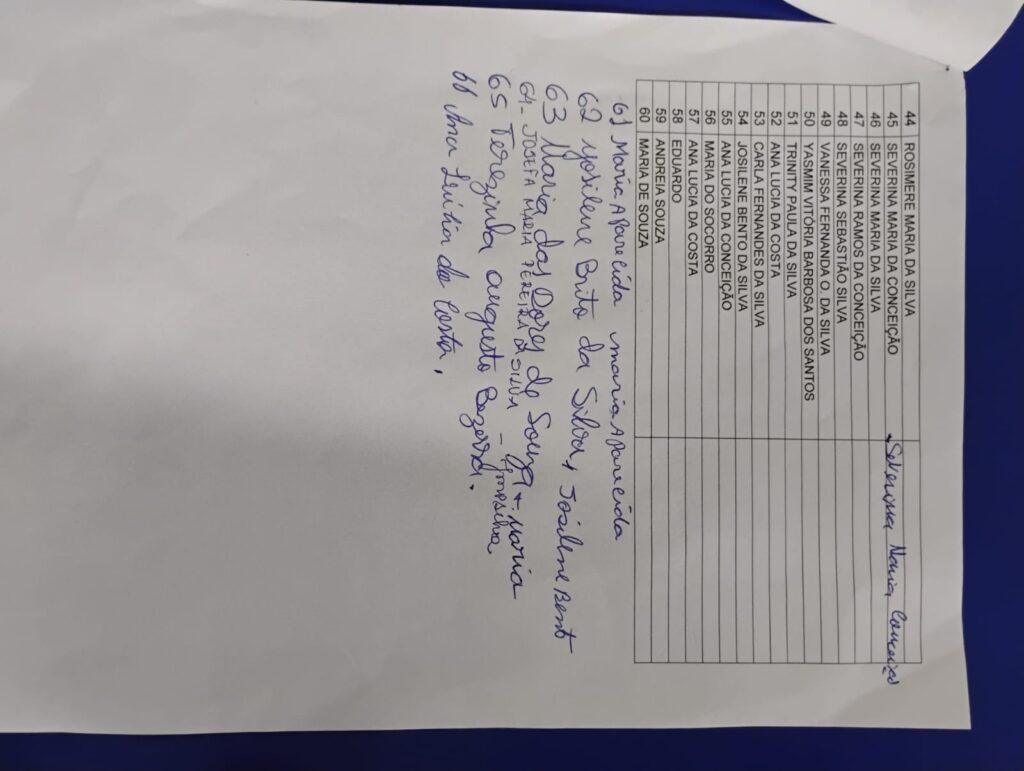 44 ROSIMERE MARIA DA SILVA
45 SEVERINA MARIA DA CONCEIÇÃO Severina Maria Conceição
46 SEVERINA MARIA DA SILVA
47 SEVERINA RAMOS DA CONCEIÇÃO
48 SEVERINA SEBASTIÃO SILVA
49 VANESSA FERNANDA O. DA SILVA
50 YASMIM VITÓRIA BARBOSA DOS SANTOS
51 TRINITY PAULA DA SILVA
52 ANA LUCIA DA COSTA
53 CARLA FERNANDES DA SILVA
54 JOSILENE BENTO DA SILVA
55 ANA LUCIA DA CONCEIÇÃO
56 MARIA DO SOCORRO
57 ANA LUCIA DA COSTA
58 EDUARDO
59 ANDREIA SOUZA
60 MARIA DE SOUZA
61 Maria Aparecida maria Aparecida
62 yosilene Brito da Silva, Josilene Bent
63 Maria das Dores de Souza +. Maria
64- JOSEFA MARIA PEREIRA D SILVA -
65 Terezinha augusto Bezerra.
66 Ana Lúcia da Costa,